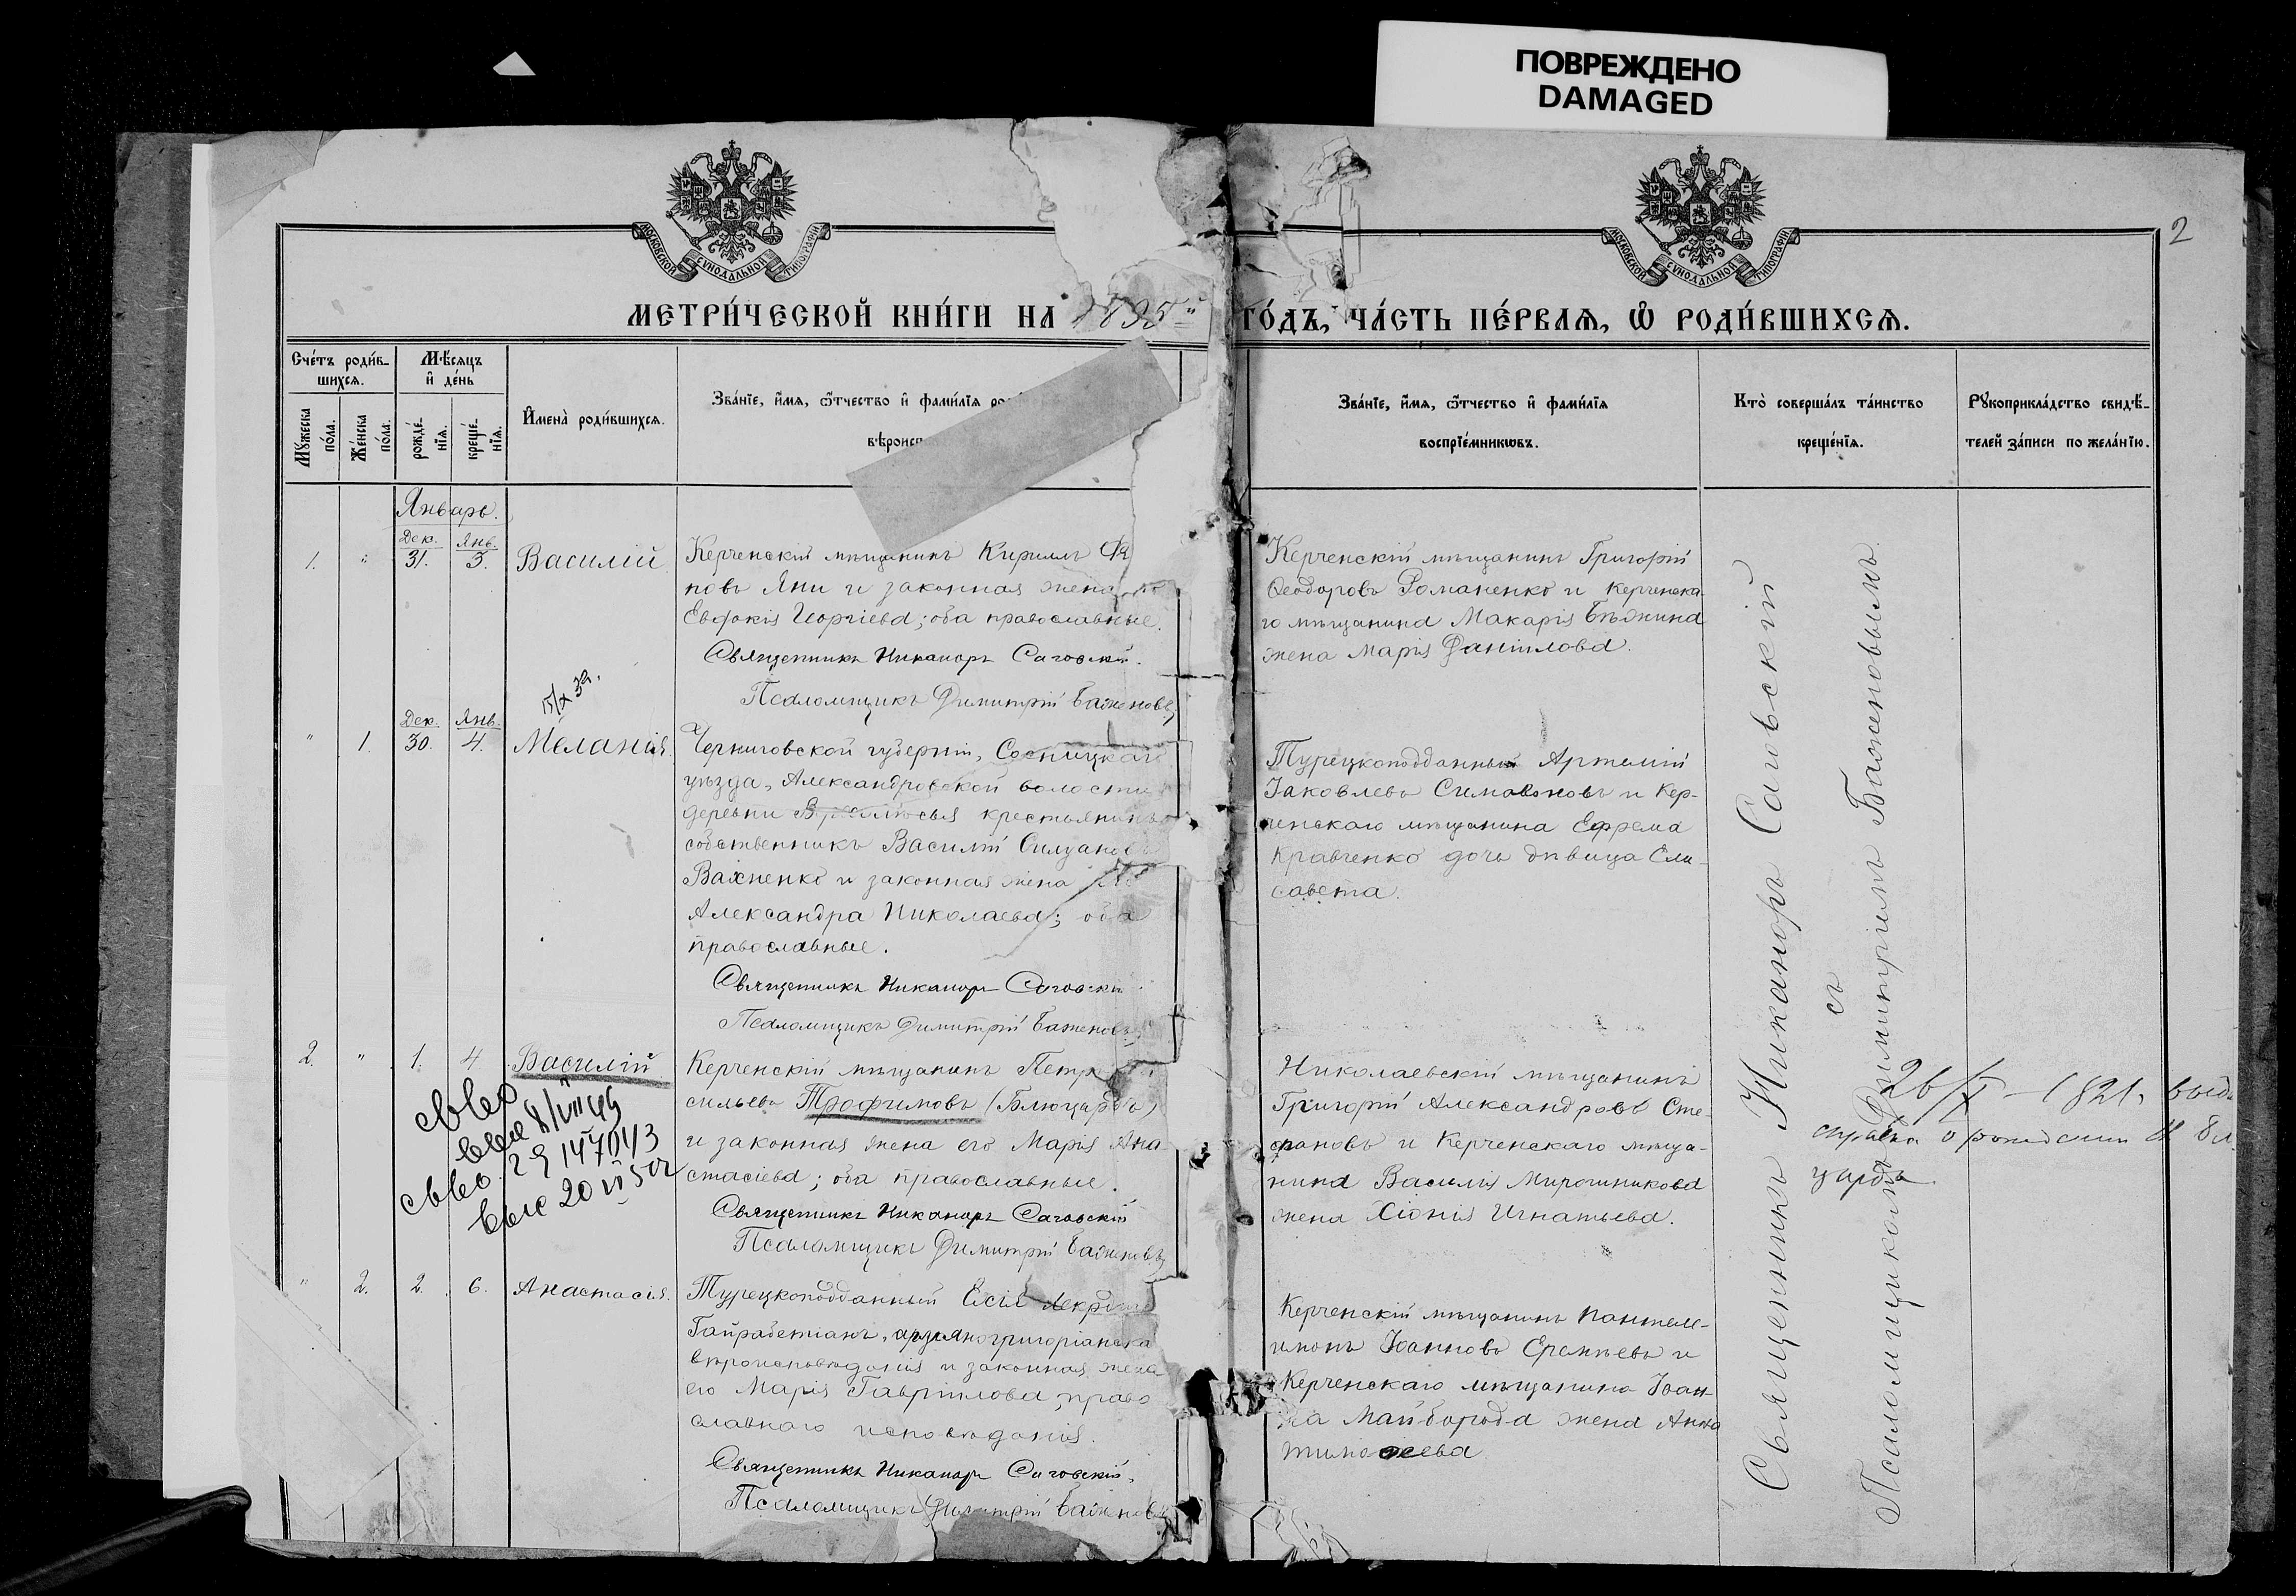 ПОВРЕЖДЕНО
DAMAGED
2
МОСКОВСКОЙ СѴНОДАЛЬНОЙ ТИПОГРАФІИ
МОСКОВСКОЙ СѴНОДАЛЬНОЙ ТИПОГРАФІИ
МЕТРИ́ЧЕСКОЙ КНИ́ГИ НА 1895й ГО́ДЪ, ЧА́СТЬ ПЕ́РВАЯ, Ѡ РОДИ́ВШИХСЯ.
Счетъ родив-
шихся.
Мужеска пола.
Женска пола.
Мѣсяцъ
и день
рожде-
нія.
креще-
нія.
Имена родившихся.
Званіе, имя, отчество и фамилія
Званіе, имя, отчество и фамилія
воспріемниковъ.
Кто совершалъ таинство
крещенія.
Рукоприкладство свидѣ-
телей записи по желанію.
Январь.
1. " Дек. 31. Янв. 3. Василій
Керченскій мѣщанинъ Кириллъ
новъ Яни и законная жена его
Евдокія Георгіева; оба православные.
Священникъ Никаноръ Саговскій.
Псаломщикъ Димитрій Баженовъ
Керченскій мѣщанинъ Григорій
Ѳеодоровъ Романенко и керченска-
го мѣщанина Макарія Бѣжина
жена Марія Даніилова.
15/X 39.
" 1. Дек. 30. Янв. 4. Меланія.
Черниговской губерніи, Сосницкаго
уѣзда, Александровской волости
деревни крестьянинъ
собственникъ Василій Силуановъ
Вахненко и законная жена его
Александра Николаева; оба
православные.
Священникъ Никаноръ Саговскій
Псаломщикъ Димитрій Баженовъ
Турецкоподданный Артемій
Іаковлевъ Симавоновъ и Кер-
ченскаго мѣщанина Ефрема
Кравченко дочь дѣвица Ели-
савета.
2. " 1. 4 Василій
Керченскій мѣщанинъ Петръ
сильевъ Трофимовъ (Блюцаръ)
и законная жена его Марія Ана-
стасіева; оба православные.
Священникъ Никаноръ Саговскій
Псаломщикъ Димитрій Баженовъ
Николаевскій мѣщанинъ
Григорій Александровъ Сте-
фановъ и Керченскаго мѣща-
нина Василія Мирошникова
жена Хіонія Игнатьева.
" 2. 2. 6. Анастасія.
Турецкоподданный
вѣроисповѣданія и законная жена
его Марія Гавріилова, право
славнаго исповѣданія.
Священникъ Никаноръ Саговскій.
Псаломщикъ Димитрій Баженовъ
Керченскій мѣщанинъ Пантеле-
имонъ Іоанновъ и
Керченскаго мѣщанина Іоан-
на Майборода жена Анна
Тимоѳеева
Священникъ Никаноръ Саговскій
съ
Псаломщикомъ Димитріемъ Баженовымъ.
справка о рождении